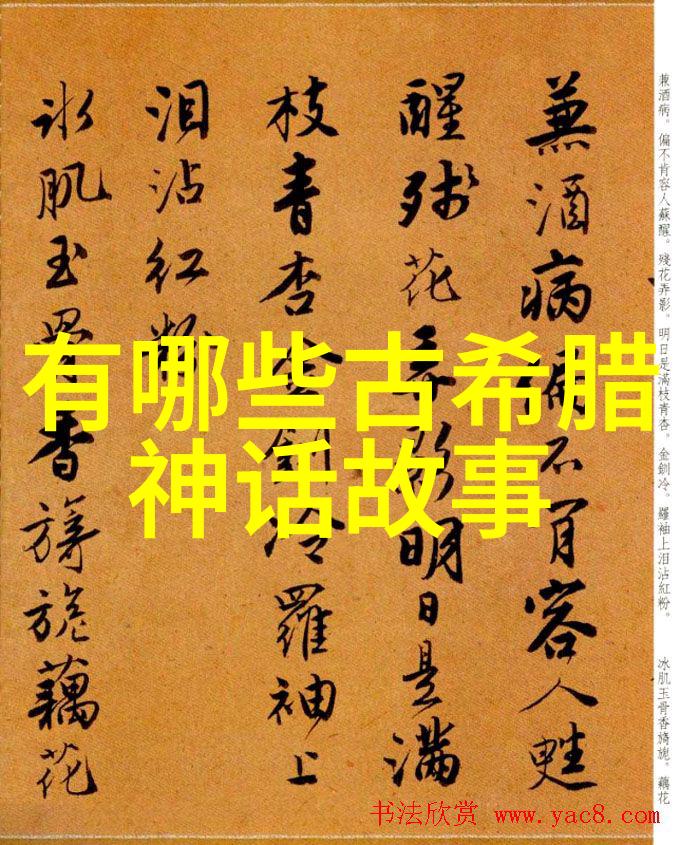 有哪些古希腊
神话故事
兼酒病。偏不肯容人蘇醒。殘花弄影。明日是滿枝青杏。金釧冷。羅袖上泪沾紅粉。
冰肌玉骨香旖旎。藕花
兼酒病偏不肯容人甦
醒殘花弄影明日是滿
枝青杏金釧冷羅袖上
泪沾红粉
氷肌玉骨香旖旎藕花
书法欣赏 www.yac8.com